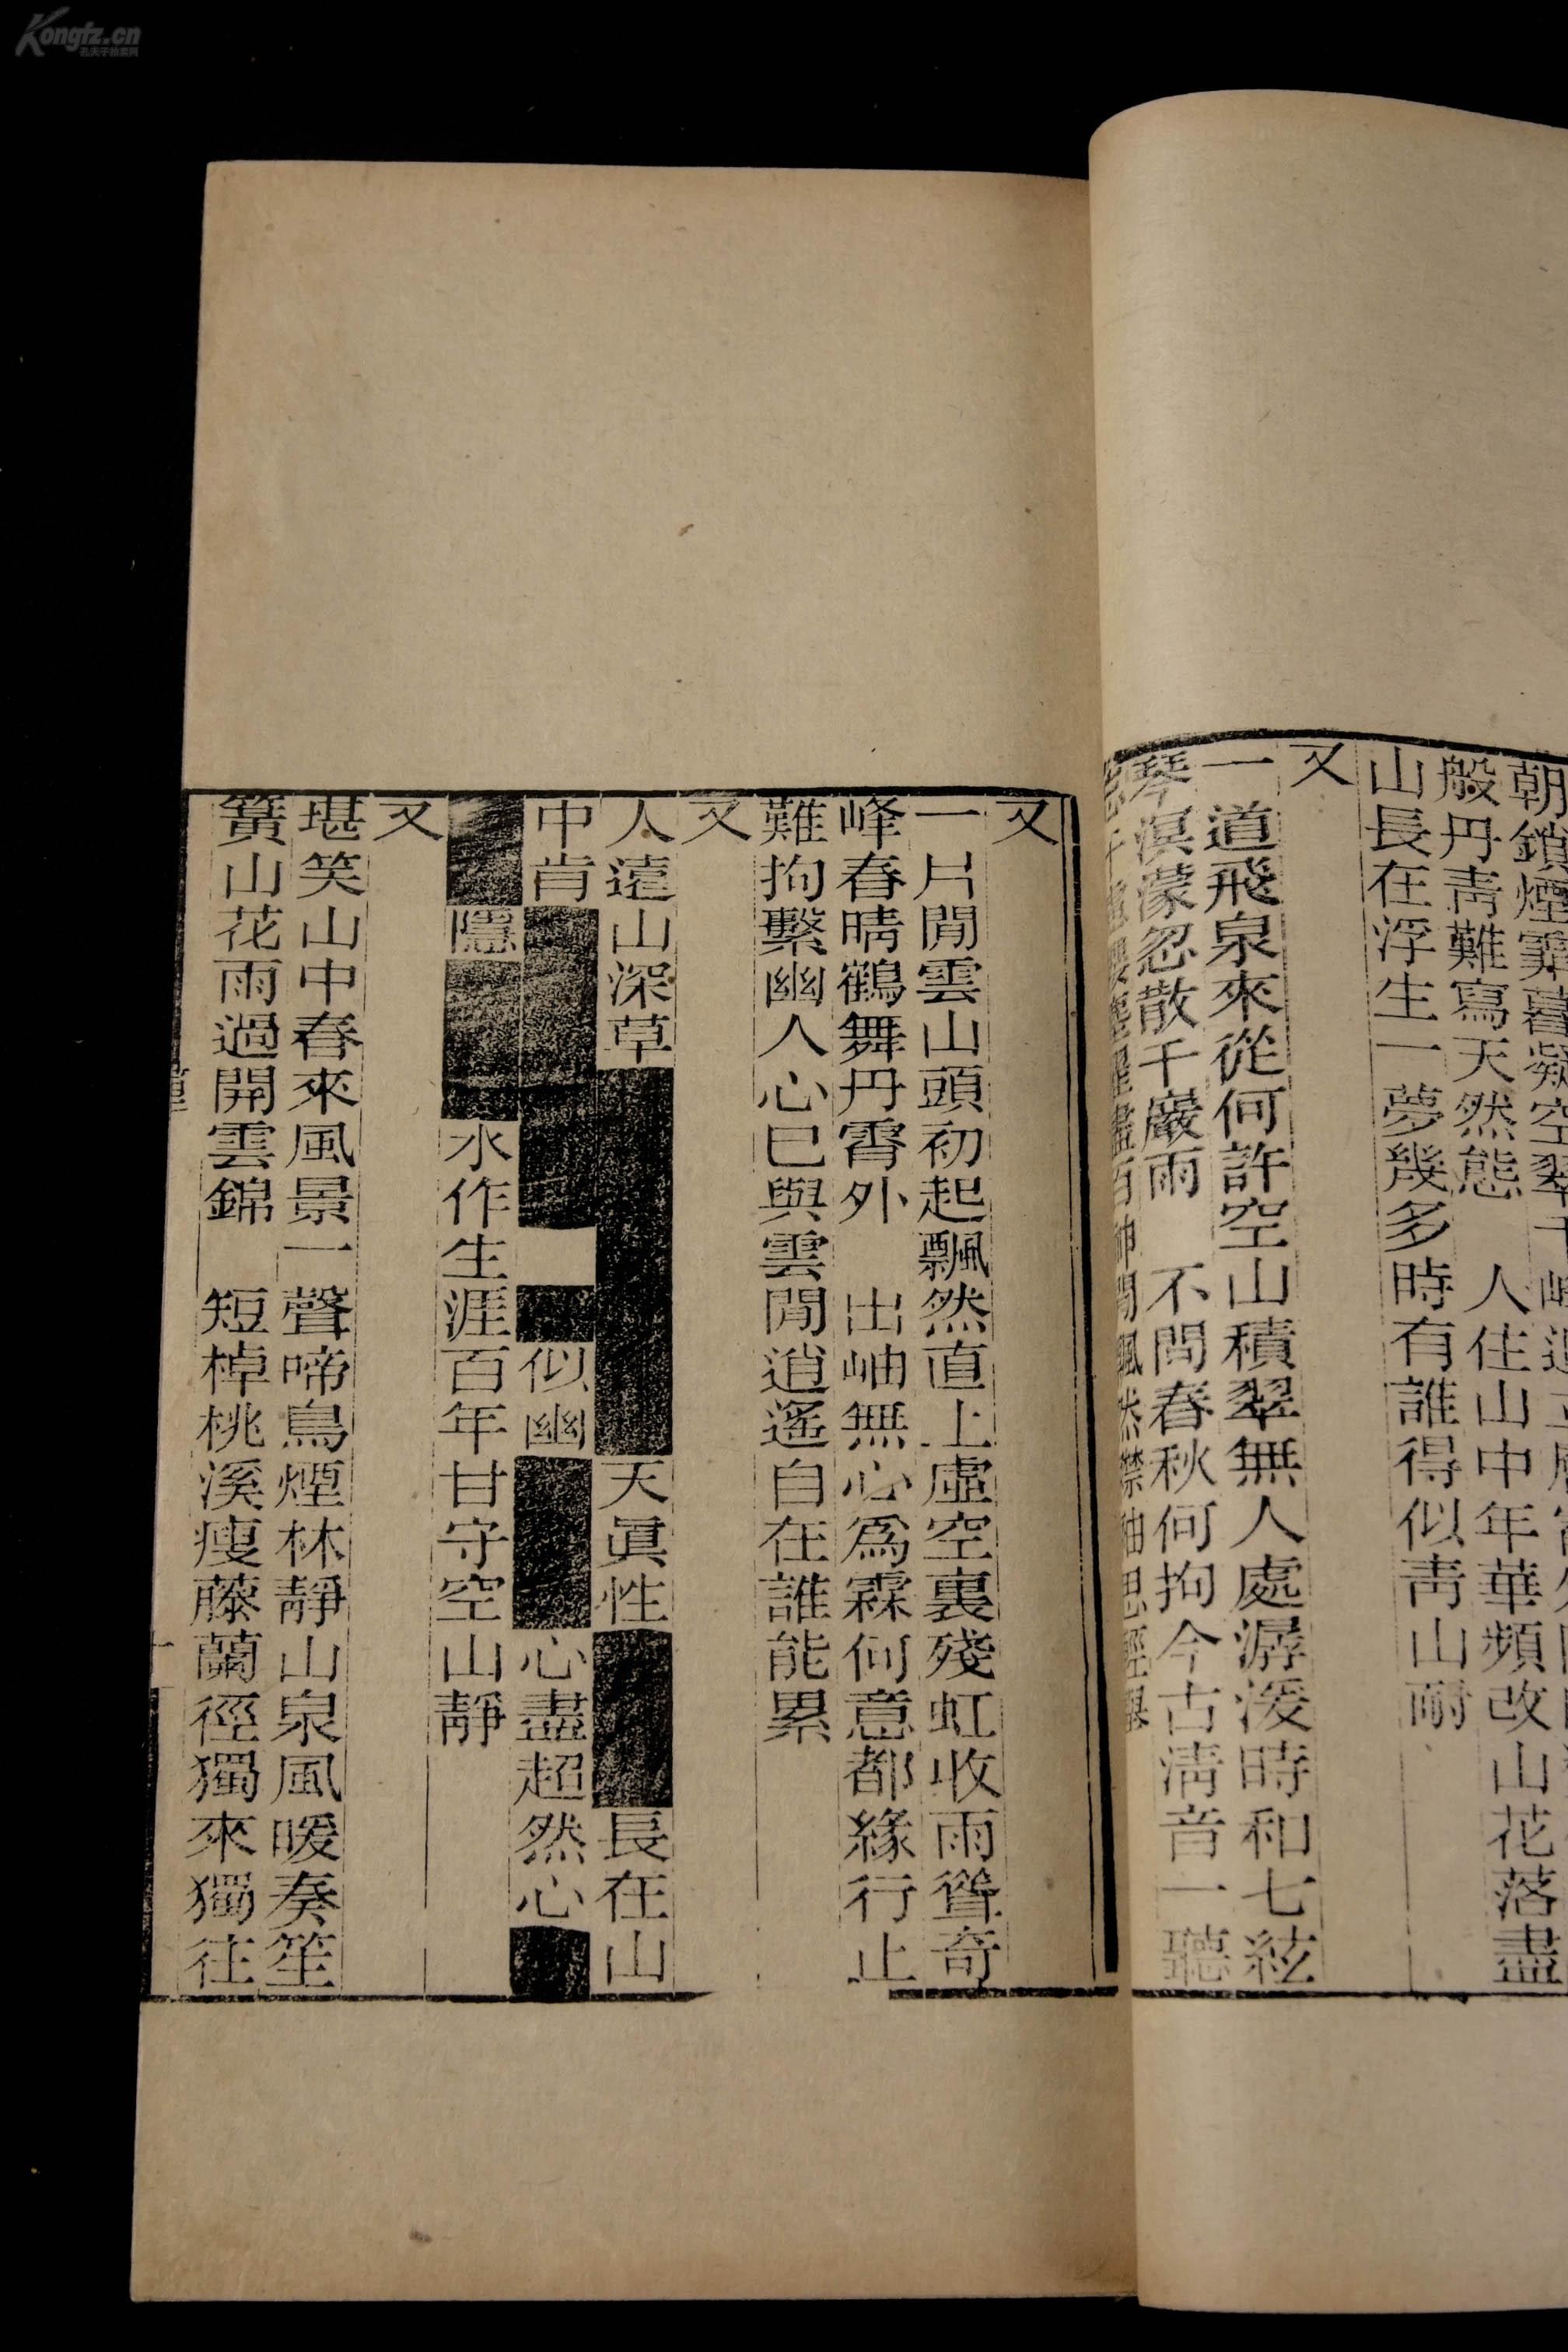 朝鎖煙霏暮凝空翠千峰迥立
般丹靑難寫天然態　人住山中年華頻改山花落盡
山長在浮生一夢幾多時有誰得似靑山耐
又
一道飛泉來從何許空山積翠無人處潺湲時和七絃
琴溟濛忽散千巖雨　不問春秋何拘今古淸音一聽
又
一片閒雲山頭初起飄然直上虛空裏殘虹收雨聳奇
峰春晴鶴舞丹霄外　出岫無心爲霖何意都緣行止
難拘繫幽人心已與雲閒逍遙自在誰能累
又
人遠山深草■■■■■■■天眞性■■■長在山
中肯■■■■■■　■似幽■■■心盡超然心■
■■隱■■■水作生涯百年甘守空山靜
又
堪笑山中春來風景一聲啼鳥煙林靜山泉風暖奏笙
簧山花雨過開雲錦　短棹桃溪瘦藤蘭徑獨來獨往
Kongfz.cn
孔夫子旧书网